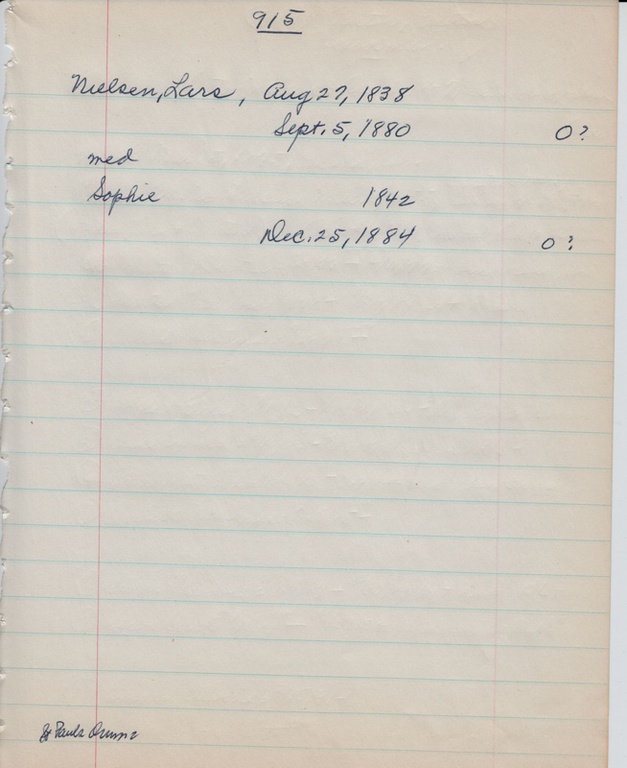 915
Nielsen, Lars, Aug 27, 1838
Sept. 5, 1880 0?
med
Sophie 1842
Dec. 25, 1884 0?
St Pauls